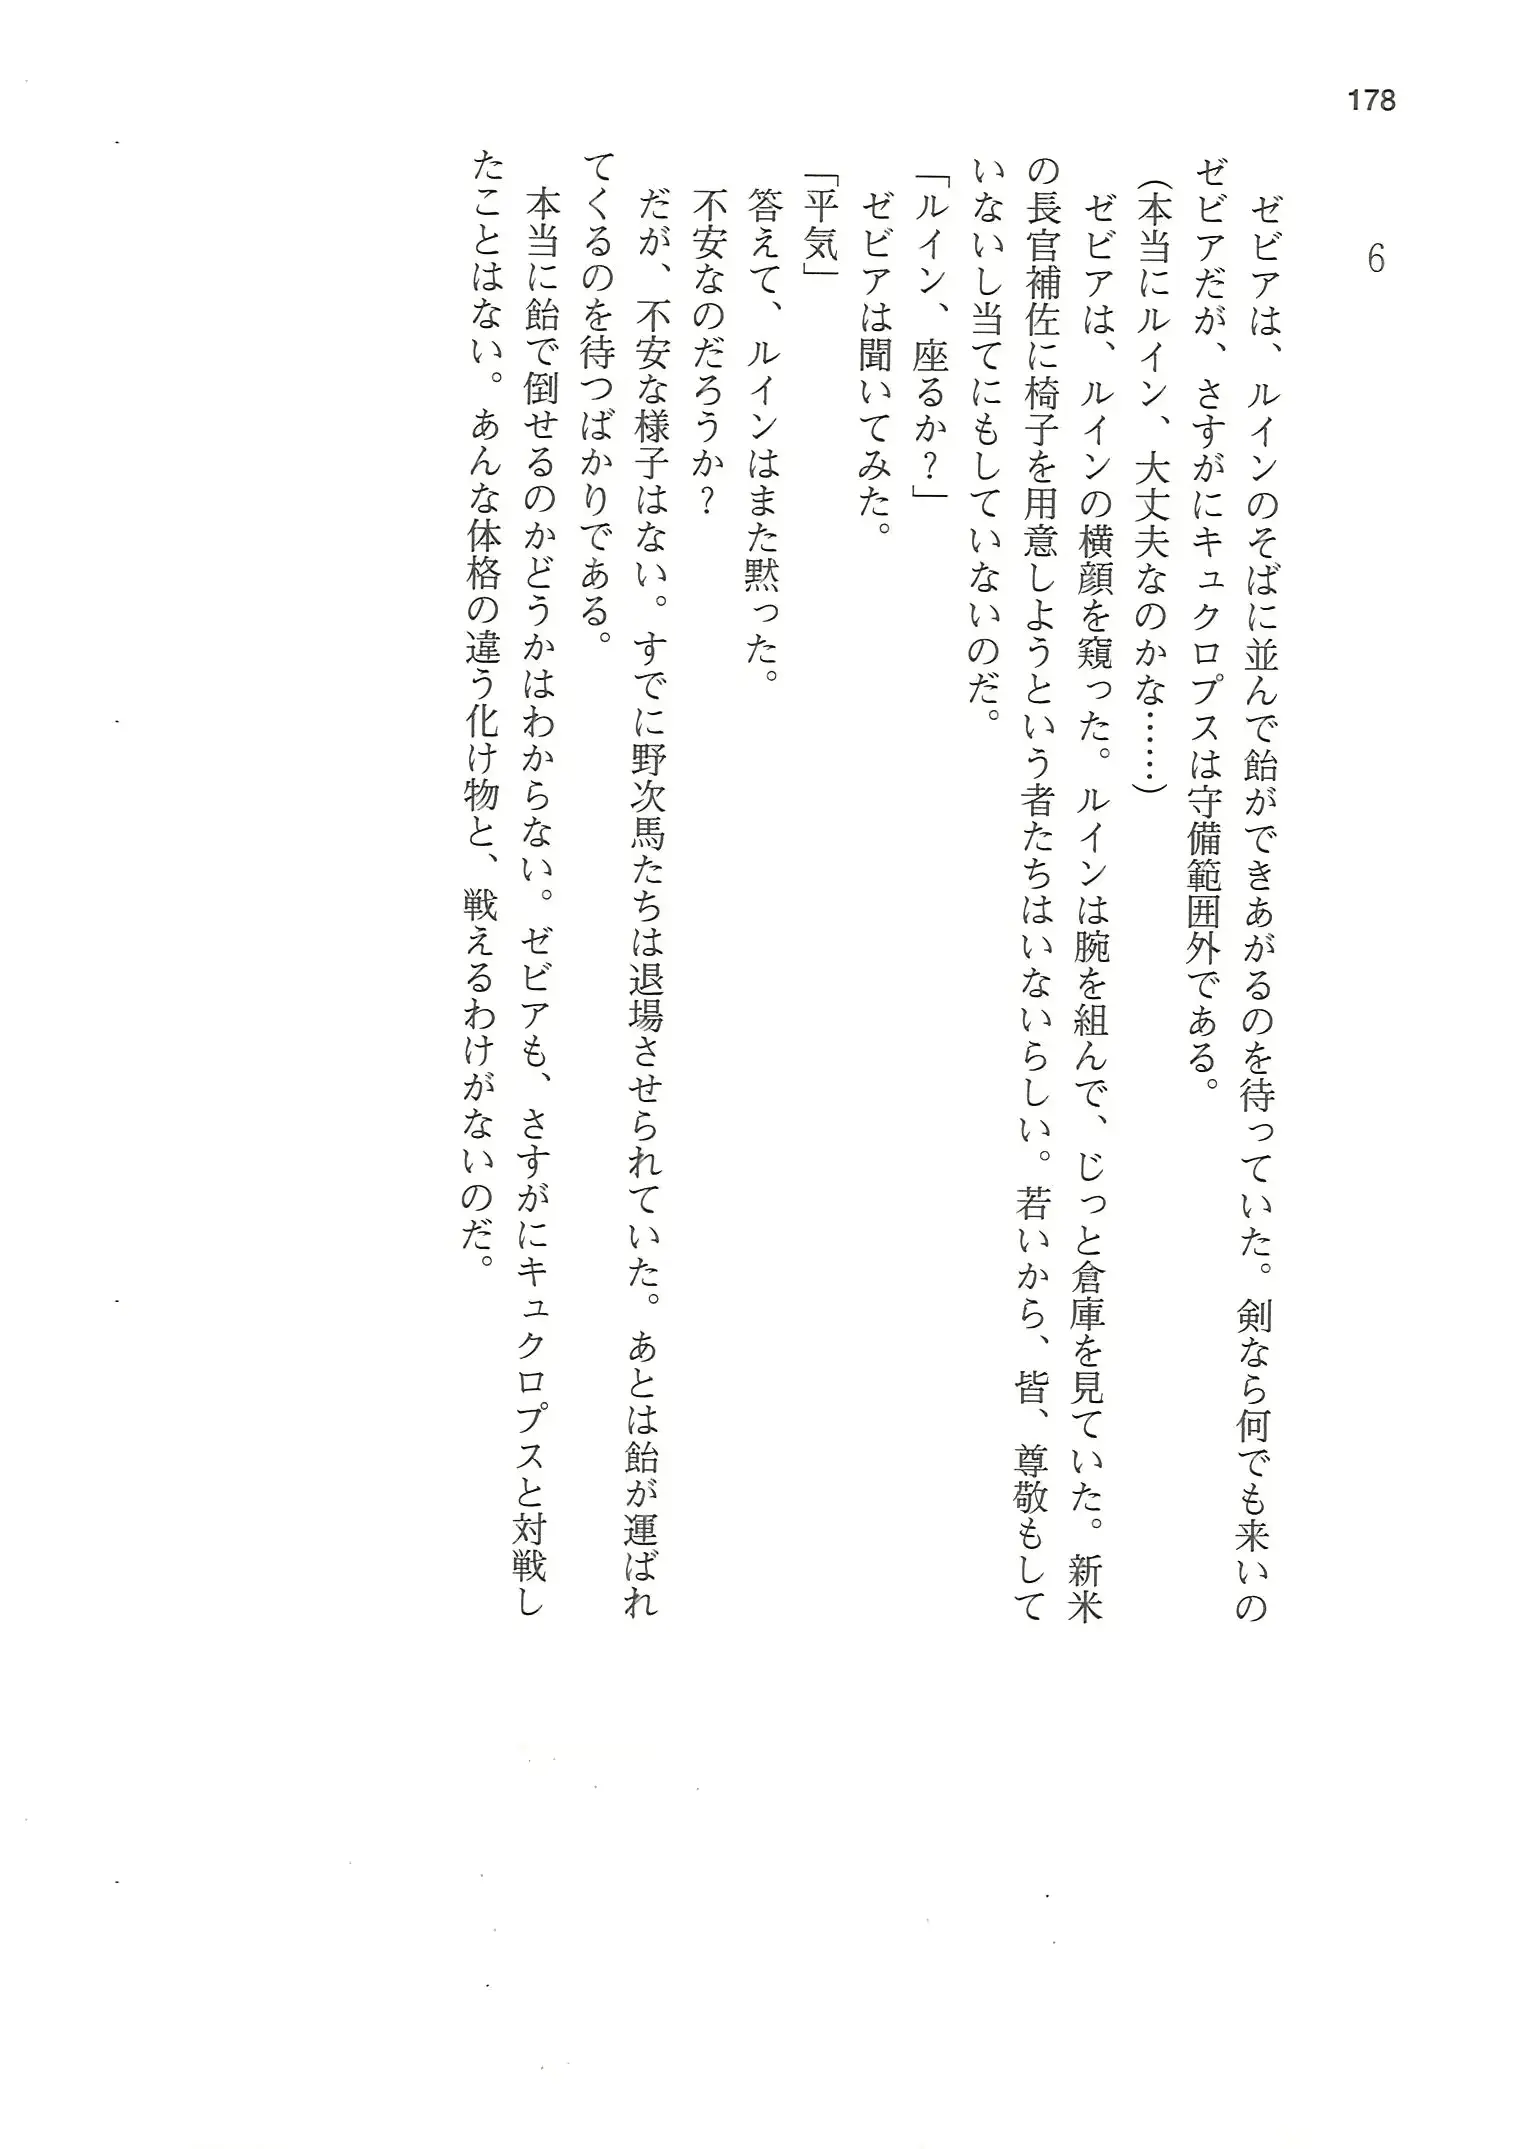 178
6
ゼビアは、ルインのそばに並んで飴ができあがるのを待っていた。剣なら何でも来いの
ゼビアだが、さすがにキュクロプスは守備範囲外である。
（本当にルイン、大丈夫なのかな……）
ゼビアは、ルインの横顔を窺った。ルインは腕を組んで、じっと倉庫を見ていた。新米
の長官補佐に椅子を用意しようという者たちはいないらしい。若いから、皆、尊敬もして
いないし当てにもしていないのだ。
「ルイン、座るか？」
ゼビアは聞いてみた。
「平気」
答えて、ルインはまた黙った。
不安なのだろうか？
だが、不安な様子はない。すでに野次馬たちは退場させられていた。あとは飴が運ばれ
てくるのを待つばかりである。
本当に飴で倒せるのかどうかはわからない。ゼビアも、さすがにキュクロプスと対戦し
たことはない。あんな体格の違う化け物と、戦えるわけがないのだ。